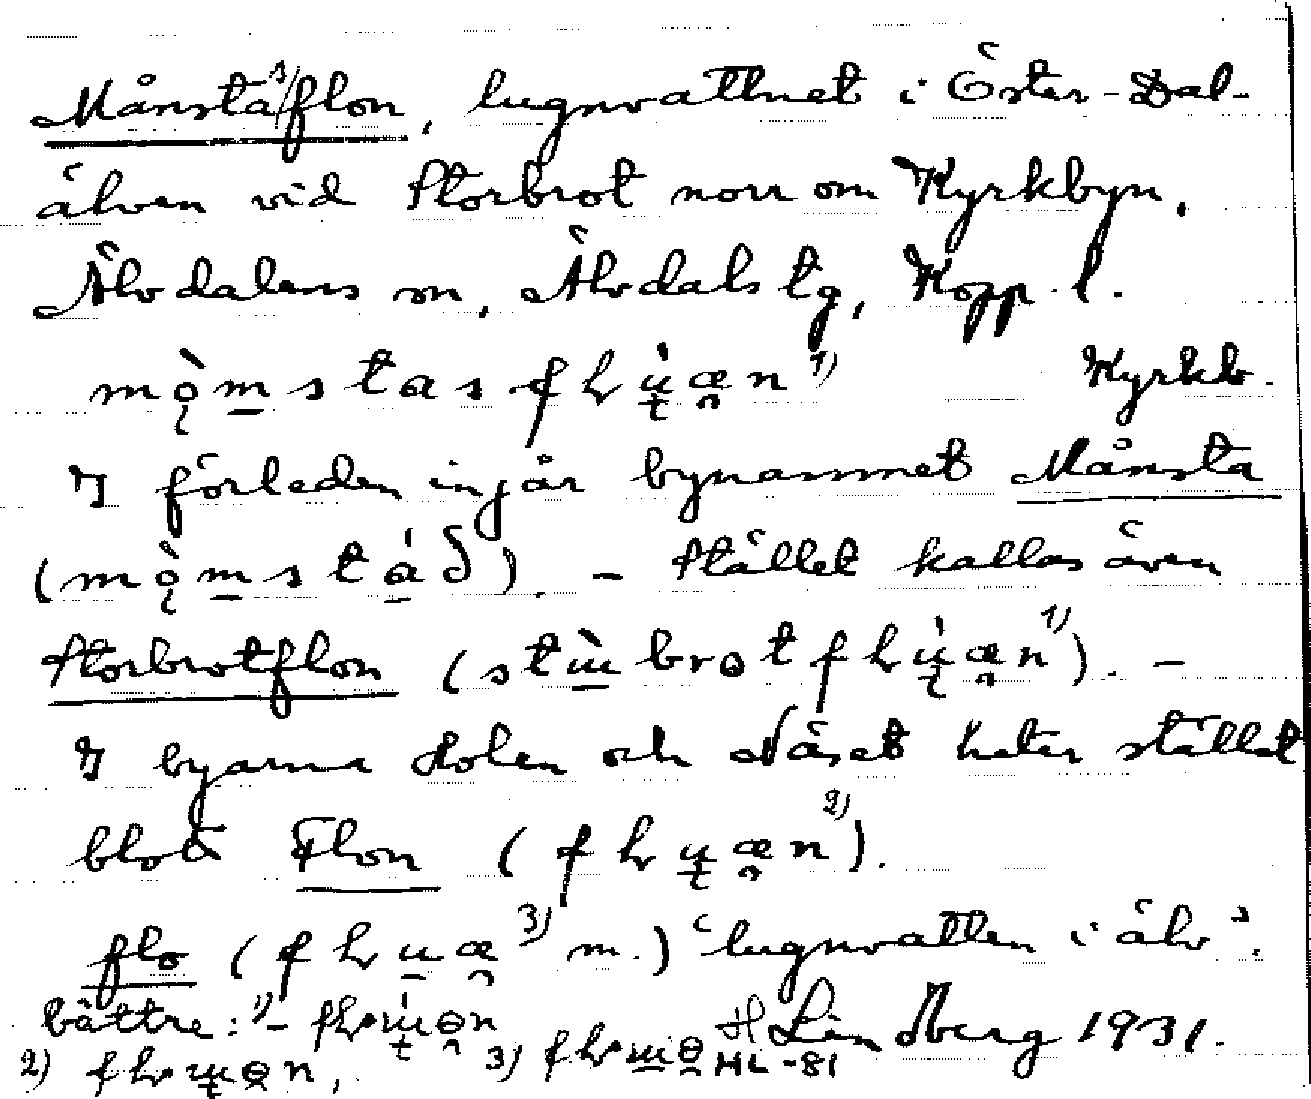 Månsta(s)flon, lugnvattnet i Öster-Dal-
älven vid Storbrot norr om Kyrkbyn,
Älvdalens sn, Älvdals tg, Kopp. l.
mǫ̀m̲stasfƚu̯æn 1) Kyrkb.
I förleden ingår bynamnet Månsta
(mǫ̀m̲stáð). – Stället kallas även
Storbrotflon (stɯ̀brotfƚu̯æn 1)). –
I byarna Holen och Näset heter stället
blott Flon (fƚu̯æn 2)).
flo (fƚuæ 3) m.) 'lugnvatten i älv'.
bättre: 1) – fƚɯ̯ɵn H Lindberg 1931.
2) fƚɯɵn, 3) fƚɯɵ HL -81